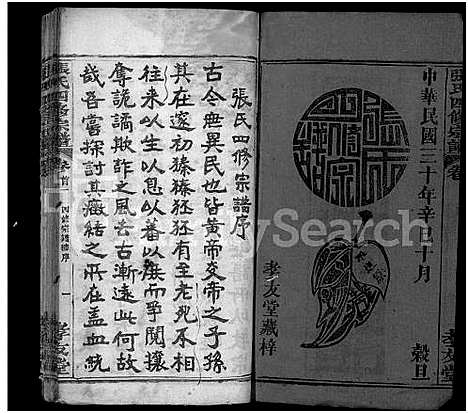 張氏四修宗譜 卷
中華民國三十年辛巳十月
穀旦
張氏四修宗譜
孝友堂藏梓
孝友堂
張氏四修宗譜序
古今無異民也皆黃帝炎帝之子孫
其在邃初獉獉狉狉有至老死不相
往來以生以息以蕃以庶而爭鬩攘
奪詭譎欺詐之風去古漸遠此何故
哉吾嘗探討其癥結之所在蓋血統
張氏四修宗譜 卷首
四修宗譜序
一
孝友堂
Search